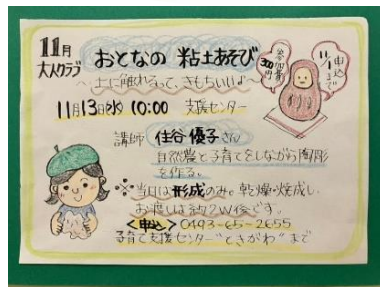 11月
大人クラブ
おとなの 粘土あそび
〜土に触れるって、きもちいい♪〜
参加費
300円
申込
11/1まで
11月13日(水) 10:00 支援センター
講師 住谷 優子さん
自然農と子育てをしながら陶彫
を作る。
※当日は形成のみで乾燥・焼成し、
お渡しは約2W後です。
<申込> 0493-65-2655
子育て支援センター"ときがわ"まで